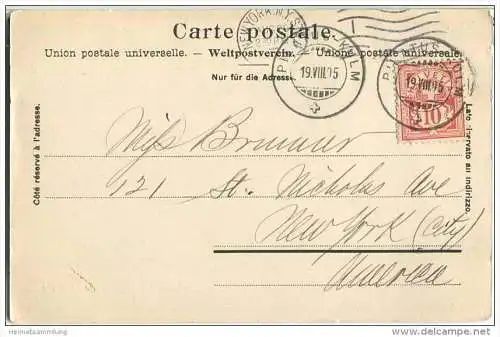 Carte postale.
Union postale universelle. – Weltpostverein. – Unione postale universale.
Nur für die Adresse.
NEW YORK, N.Y.
PILATUS-KULM
19.VIII.05
PILATUS-KULM
19.VIII.05
10
Côté réservé à l'adresse.
Lato riservato au indirizzo.
Miss Brunner
121 St. Nicholas Ave
New York (City)
America
Heimatsammlung
www.delcampe.net